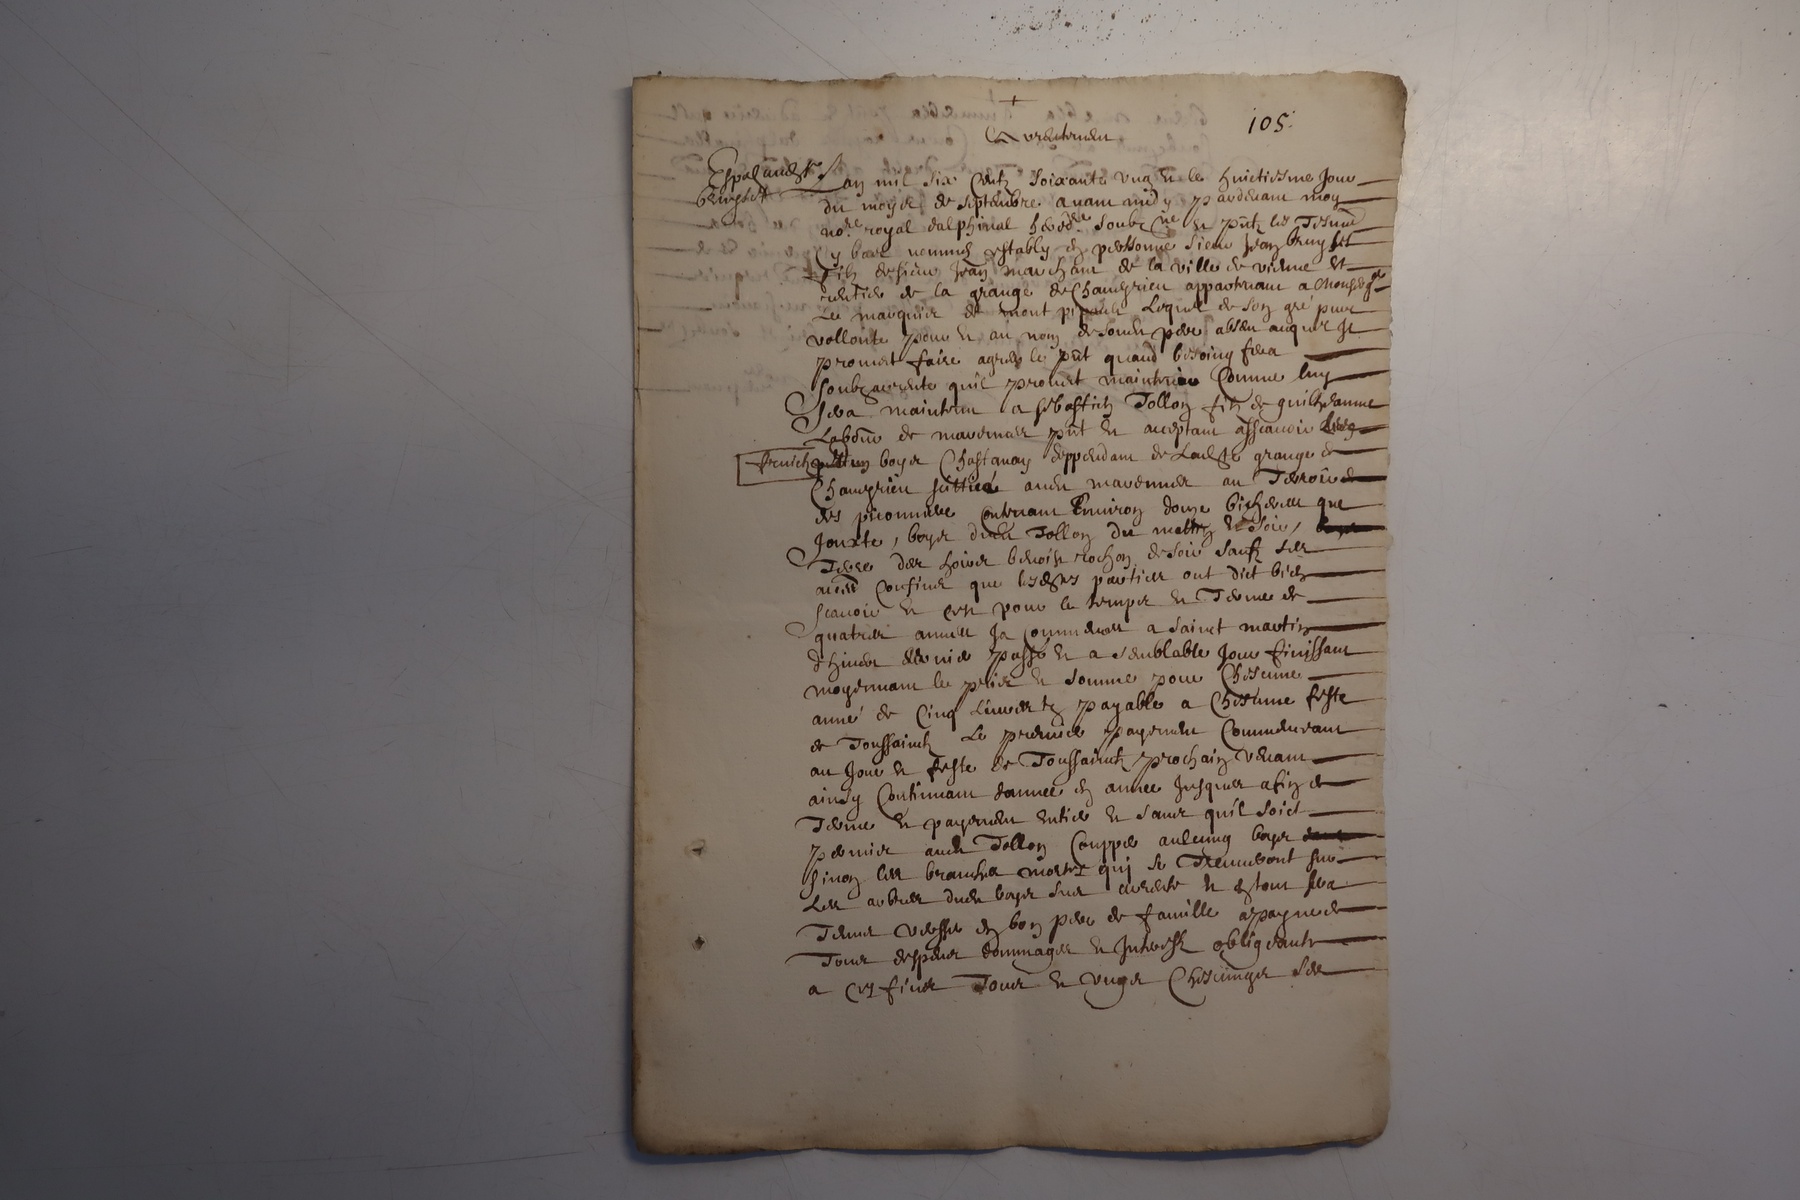 +
105.
Arrentement
Lan mil six centz soixante ung et le huictiesme jour
du moys de septembre avant midy pardevant moy
no.re royal dalphinal hered.re soubz.ne et pñtz les tesmᵉ
cy bas nommes estably en personne sieur Jean bruyset
filz de sieur Jean marchant de la ville de vienne et
rentier de la grange de Chamgrieu appartenant a
Le marquis de mont lequel de son gré pure
vollonte pour et au nom de son pere absen auquel Il
promet faire agreer le pñt quand besoing sera
soubzarrente quil promet maintenir comme luy
sera maintenu a sebastien Tollon filz de guilhaume
Labour de marennes pñt et acceptant assavoir
boys Chastanay deppendant de grange de
Chamgrieu scittué aud marennes au Terroir
des contenant Environ douze bicherees que
Jouxte, boys dud Tollon du et soir,
Terre des hoirs benoist rochon de soir sauf ses
confins que lesd parties ont dict bien
scavoir et cest pour le temps et Terme de
quatres annes Ja commences a sainct martin
dhiver dernier passé et a semblable jour finissant
moyennant le pris et somme pour Chescune
anné de Cinq payable a Chescune feste
de Toussainctz Le premier payement commencant
au jour et feste de Toussainctz prochain venant
ainsy continuant dannee en annee jusques a fin de
Terme et payement entier et sans quil soict
permier aud Tollon coupper aulcung boys
sinon les branches mortes qui se Treuveront sur
Les arbres dud boys sus arrente et en tout sera
Tenu user en bon pere de famille a payne de
Tous despens dommages et Interestz obligeants
a ces fins Tous et ungs Chescungs ses